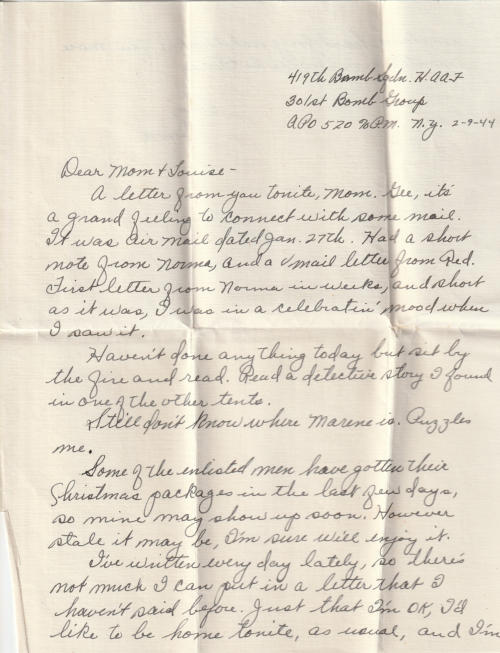 419th Bomb Sqdn. H. AAF
301st Bomb Group
APO 520 % P.M. N.Y. 2-9-44
Dear Mom & Louise -
A letter from you tonite, Mom. Gee, it's
a grand feeling to connect with some mail.
It was air mail dated Jan. 27th. Had a short
note from Norma, and a Vmail letter from Red.
First letter from Norma in weeks, and short
as it was, I was in a celebratin' mood when
I saw it.
Haven't done anything today but sit by
the fire and read. Read a detective story I found
in one of the other tents.
Still don't know where Marene is. Puzzles
me.
Some of the enlisted men have gotten their
Christmas packages in the last few days,
so mine may show up soon. However
stale it may be, I'm sure will enjoy it.
I've written every day lately, so there's
not much I can put in a letter that I
haven't said before. Just that I'm OK, I'd
like to be home tonite, as usual, and I'm